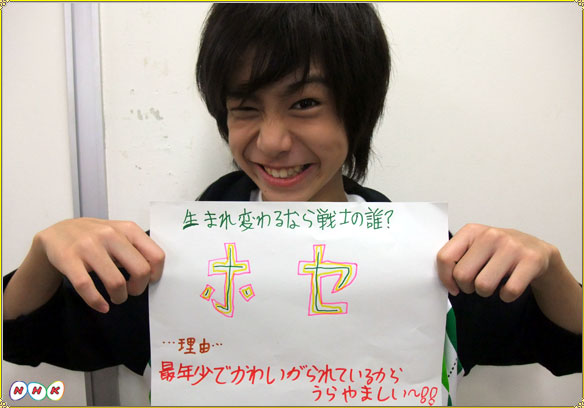 生まれ変わるなら戦士の誰？
ホセ
…理由…
最年少でかわいがられているから
うらやましい〜!!
NHK